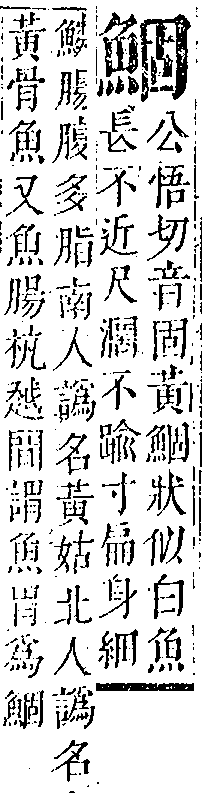 鯝
公悟切音固黃鯝狀似白魚
長不近尺濶不踰寸扁身細
鱗腸腹多脂南人譌名黃姑北人譌名
黃骨魚又魚腸杭越間謂魚胃爲鯝